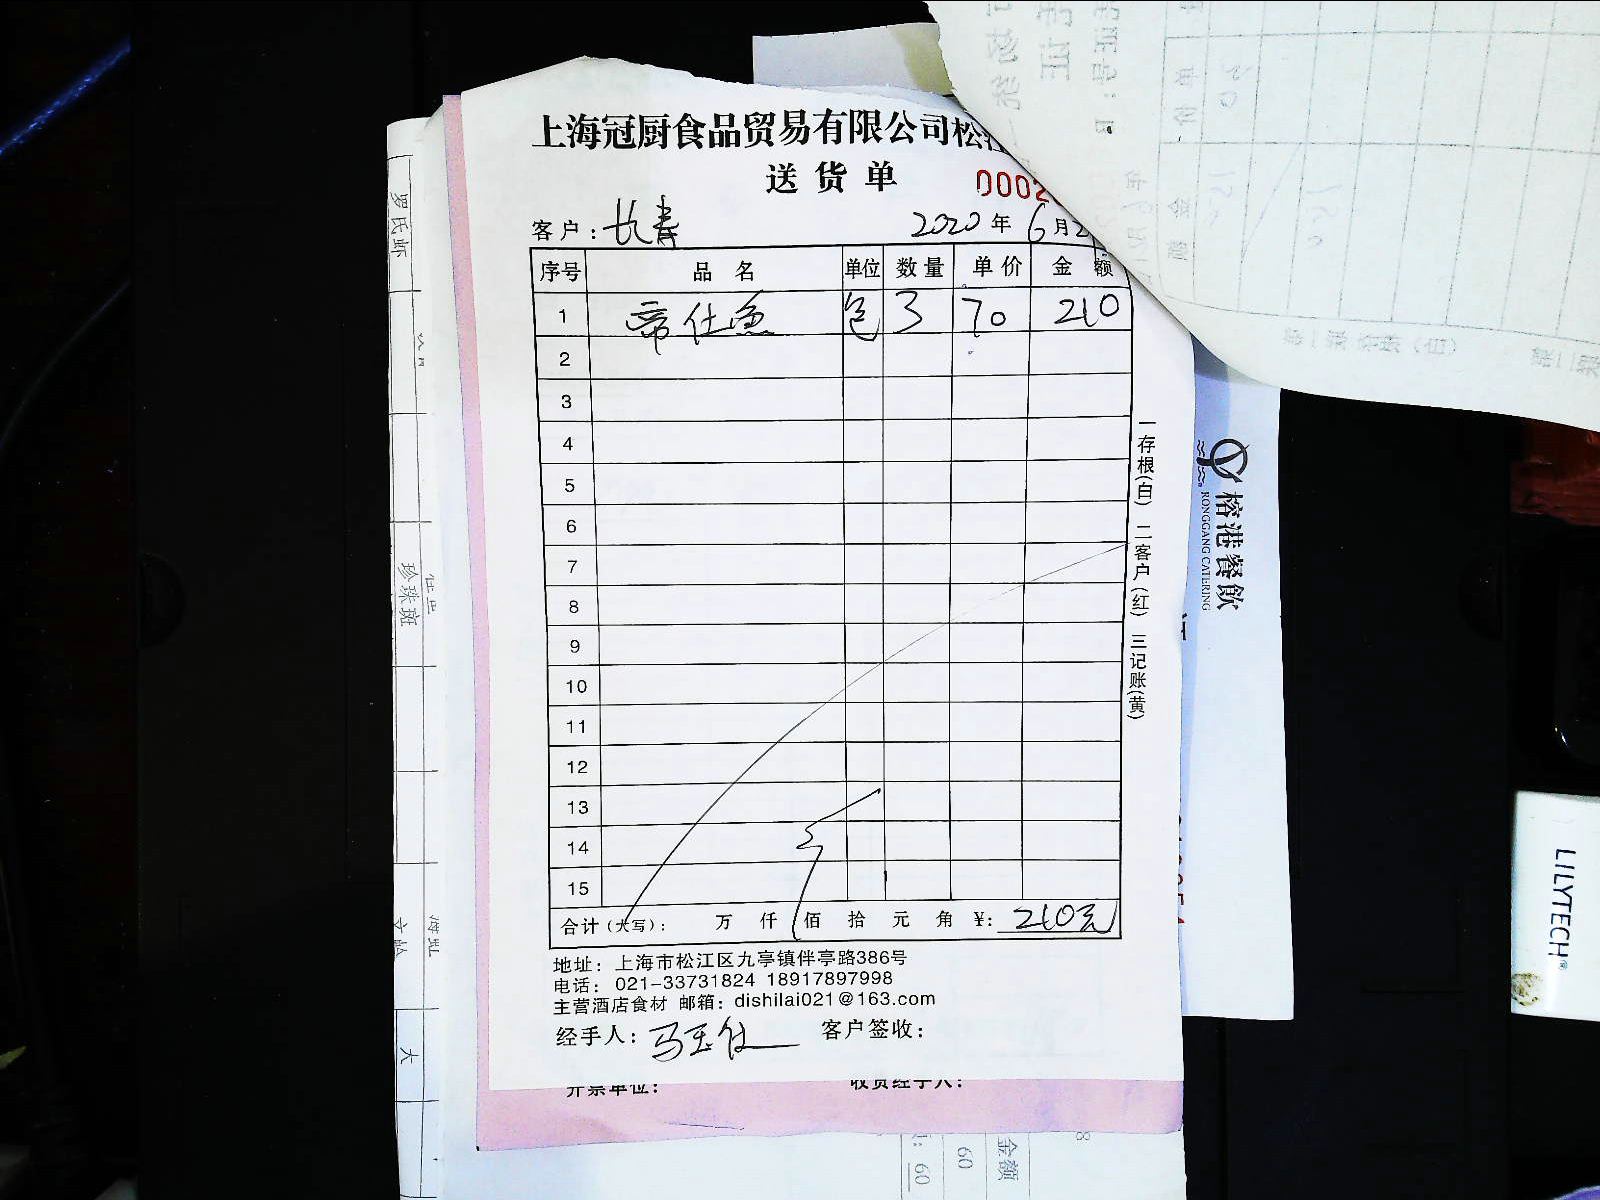 上海冠厨食品贸易有限公司松江
送货单
0002
客户：长青 2020年6月2
序号 品名 单位 数量 单价 金额
1 帝仕鱼 包 3 70 210
2
3
4
5
6
7
8
9
10
11
12
13
14
15
合计（大写）： 万 仟 佰 拾 元 角 ¥：210元
地址：上海市松江区九亭镇伴亭路386号
电话：021-33731824 18917897998
主营酒店食材 邮箱：dishilai021@163.com
经手人：马玉仕 客户签收：
开票单位： 收货经手人：
一存根(白) 二客户(红) 三记账(黄)
榕港餐飲
RONGGANG CATERING
LILYTECH®
罗氏虾
珍珠斑
大
金额
60
60